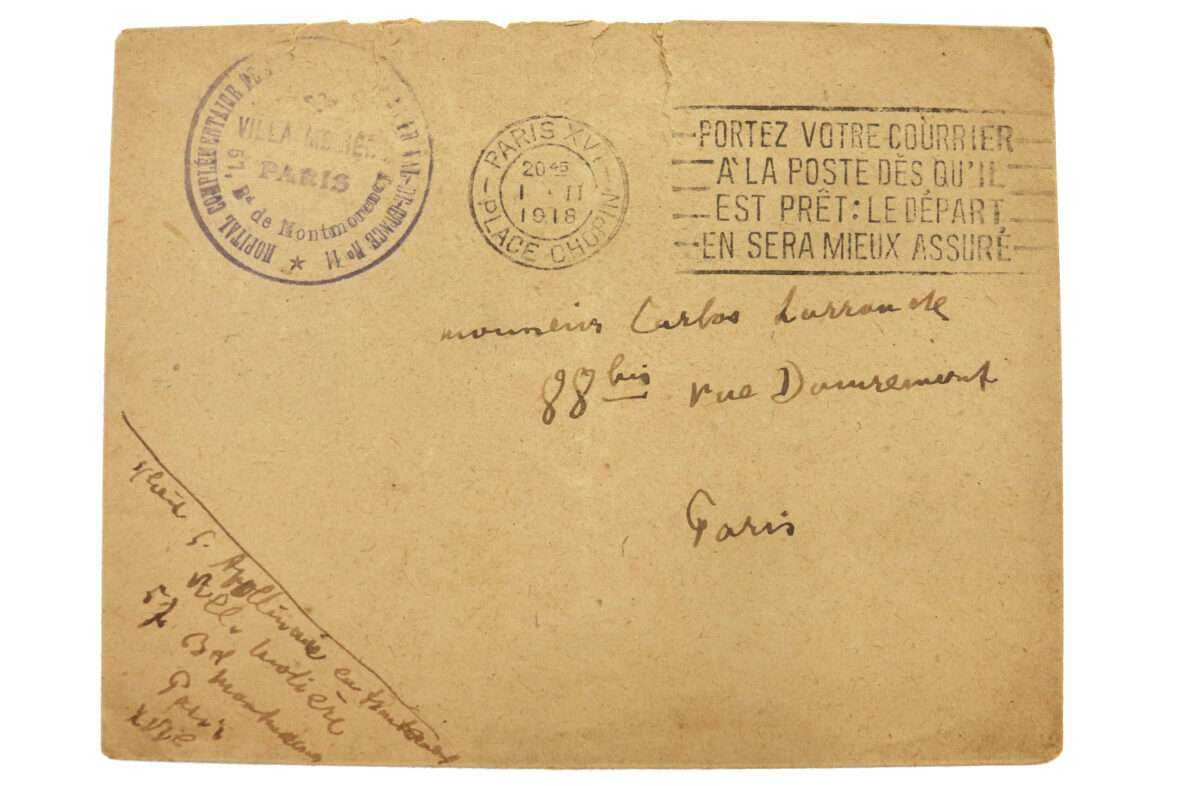 HOPITAL COMPLÉMENTAIRE DE VAL-DE-GRACE No 11
VILLA MOLIÈRE
57, Bd de Montmorency
PARIS
PARIS XVI
20 45
1 - II
1918
PLACE CHOPIN
PORTEZ VOTRE COURRIER
À LA POSTE DÈS QU'IL
EST PRÊT: LE DÉPART
EN SERA MIEUX ASSURÉ
monsieur Carlos Larronde
88 bis rue Damremont
Paris
G. Apollinaire en traitement
Villa Molière
57 Bd Montmorency
Paris
XVIe